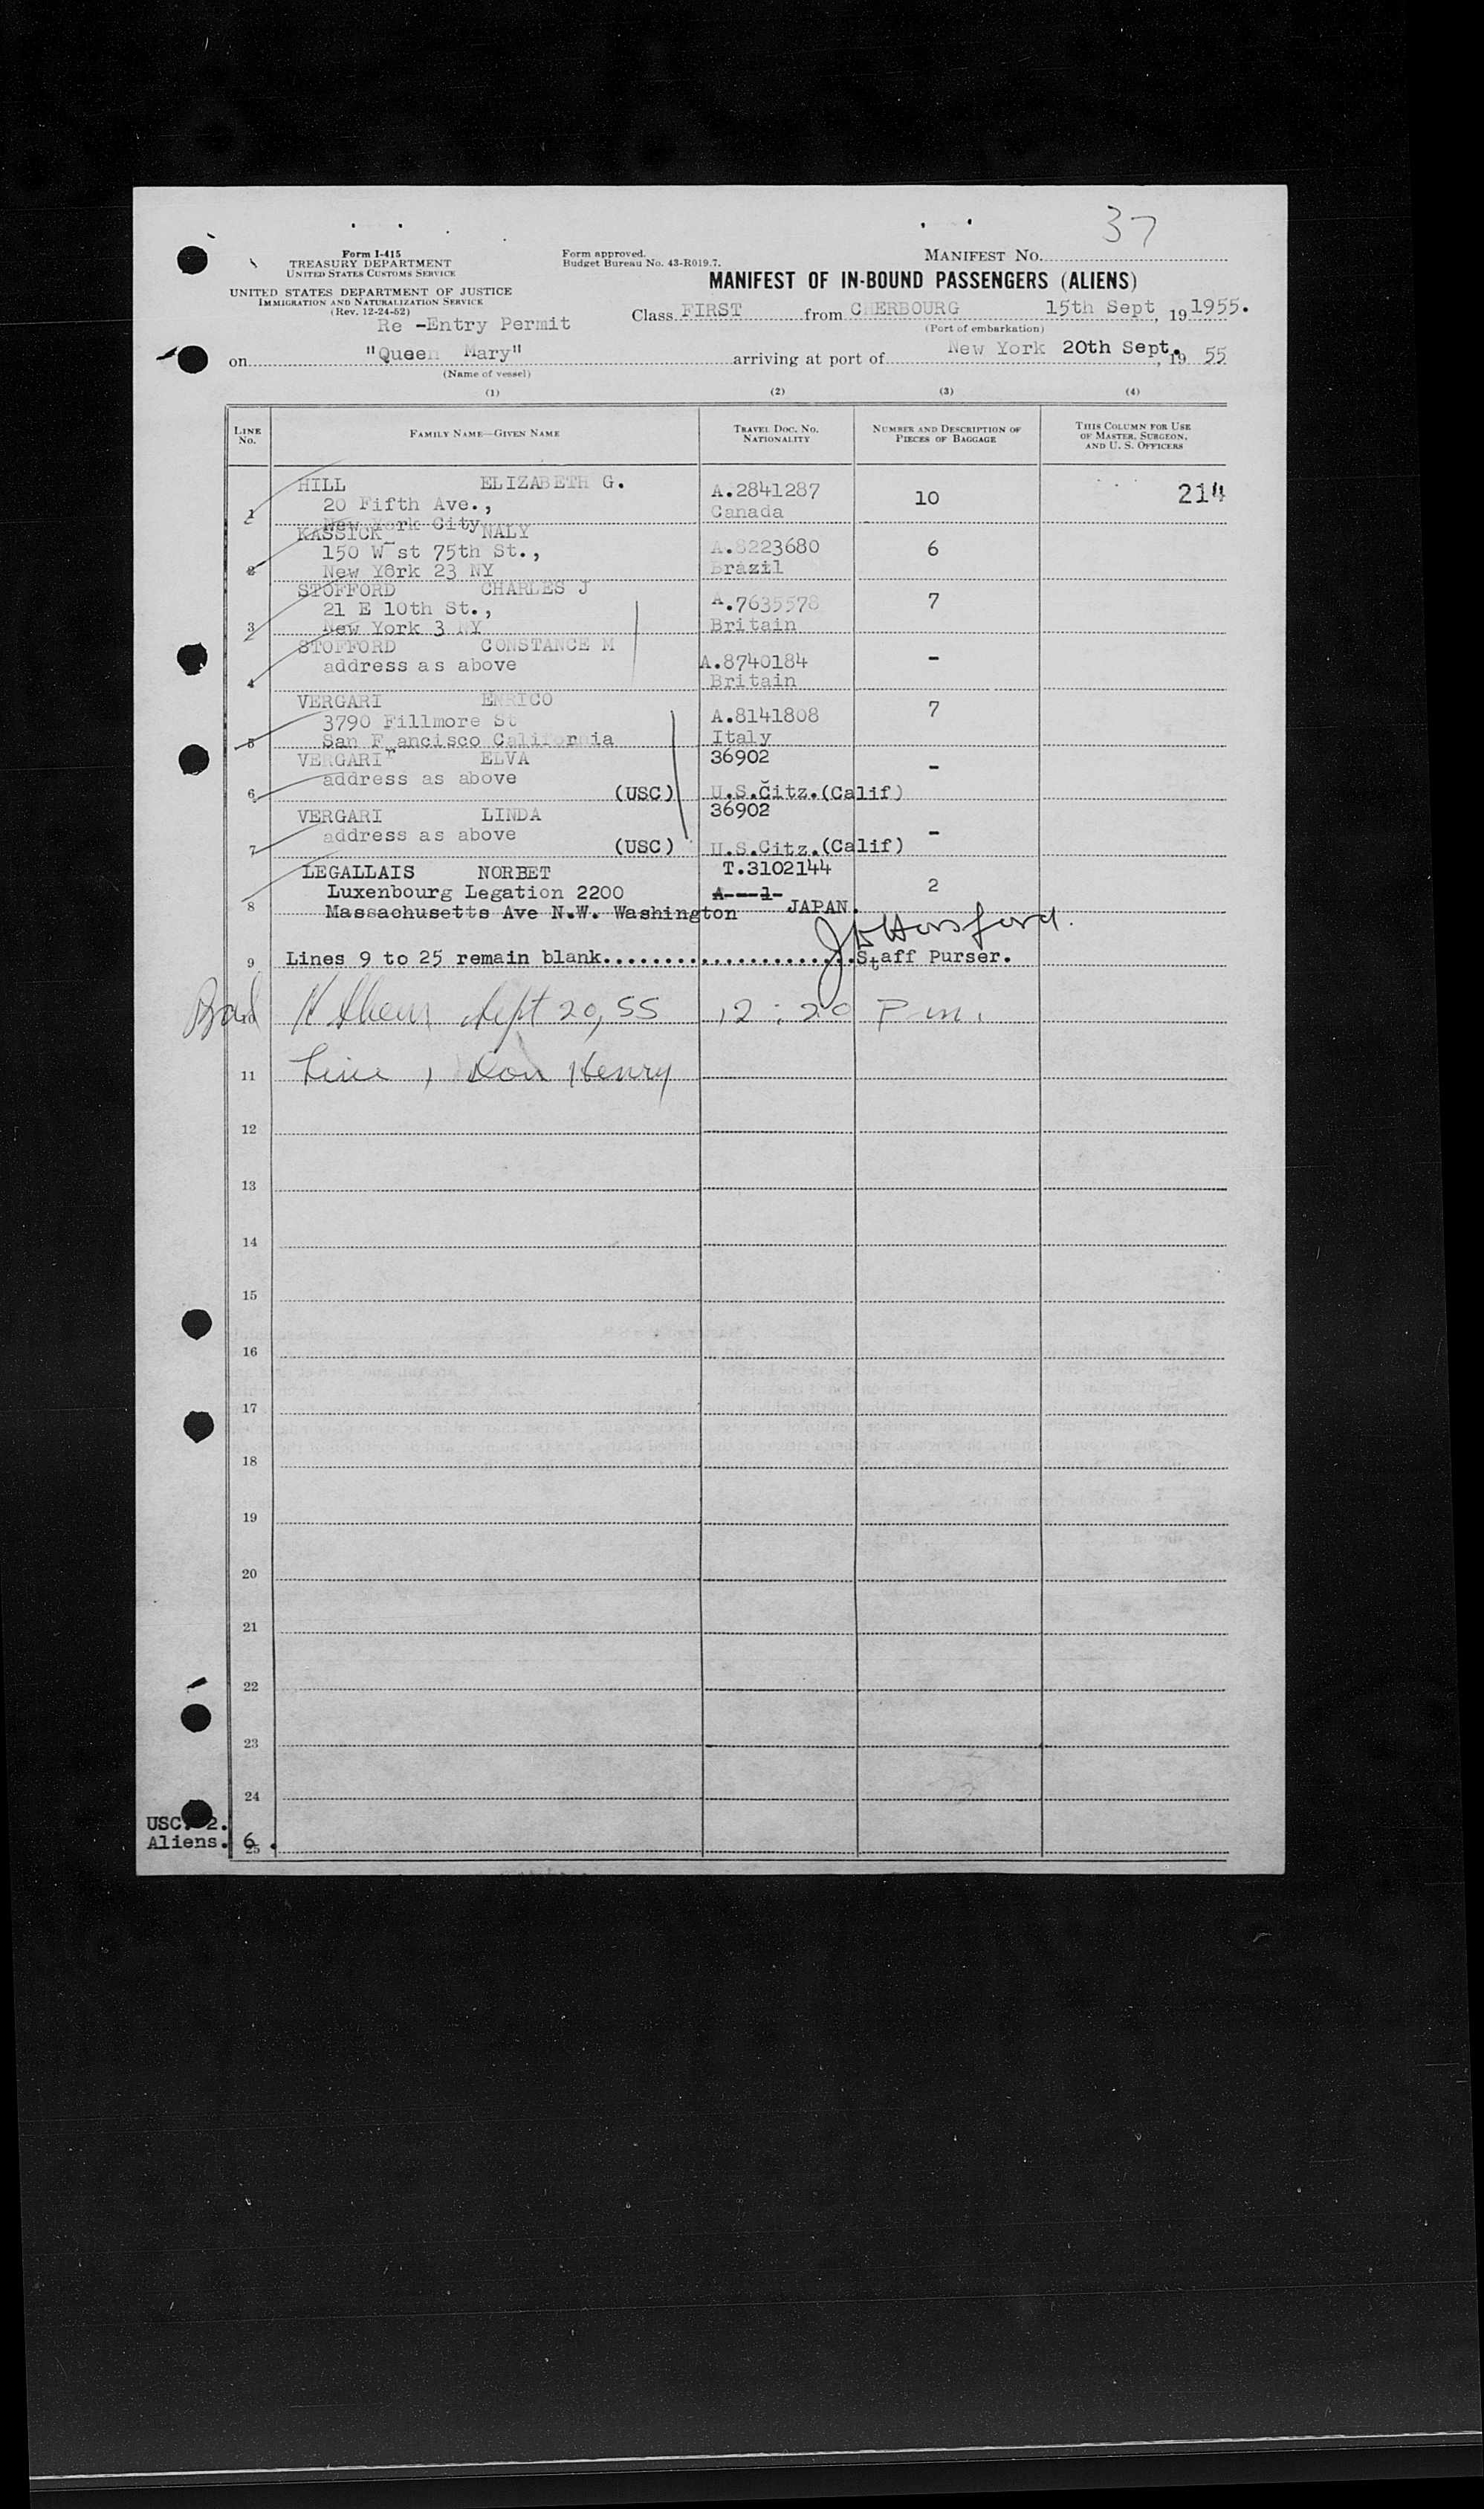 37
Form I-415
TREASURY DEPARTMENT
UNITED STATES CUSTOMS SERVICE
Form approved.
Budget Bureau No. 43-R019.7.
MANIFEST NO.
UNITED STATES DEPARTMENT OF JUSTICE
IMMIGRATION AND NATURALIZATION SERVICE
(Rev. 12-24-52)
MANIFEST OF IN-BOUND PASSENGERS (ALIENS)
Re -Entry Permit
Class FIRST from CHERBOURG 15th Sept, 19 1955.
(Port of embarkation)
on "Queen Mary" arriving at port of New York 20th Sept. , 19 55
(Name of vessel)
(1) (2) (3) (4)
LINE No. FAMILY NAME—GIVEN NAME TRAVEL DOC. NO. NATIONALITY NUMBER AND DESCRIPTION OF PIECES OF BAGGAGE THIS COLUMN FOR USE OF MASTER, SURGEON, AND U. S. OFFICERS
HILL ELIZABETH G. A.2841287 10 214
20 Fifth Ave., Canada
1 New York City
KASSICK NALY A.8223680 6
150 W st 75th St.,
2 New York 23 NY Brazil
STOFFORD CHARLES J A.7635578 7
21 E 10th St.,
3 New York 3 NY Britain
STOFFORD CONSTANCE M A.8740184 -
address as above
4 Britain
VERGARI ENRICO A.8141808 7
3790 Fillmore St
5 San Francisco California Italy
VERGARI ELVA 36902 -
address as above
6 (USC) U.S.Citz.(Calif)
VERGARI LINDA 36902 -
address as above
7 (USC) U.S.Citz.(Calif)
LEGALLAIS NORBET T.3102144 2
Luxenbourg Legation 2200 A---1-
8 Massachusetts Ave N.W. Washington JAPAN.
9 Lines 9 to 25 remain blank......................Staff Purser.
Sept 20, 55 12:20 P.m.
11 Line 1 Don Henry
12
13
14
15
16
17
18
19
20
21
22
23
24
USC. 2.
Aliens. 6 .
25